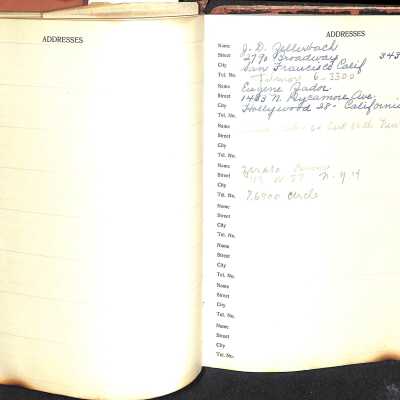 ADDRESSES
ADDRESSES
Name J. D. Zellerbach
Street 2790 Broadway 343
City San Francisco Calif
Tel. No. Fillmore 6-3300
Name Eugene Zador
Street 1453 N. Sycamore Ave.
City Hollywood 28 - California
Tel. No.
Name
Street
City
Tel. No.
Name
Street W 57 N-Y 19
City
Tel. No. 76900 circle
Name
Street
City
Tel. No.
Name
Street
City
Tel. No.
Name
Street
City
Tel. No.
Name
Street
City
Tel. No.